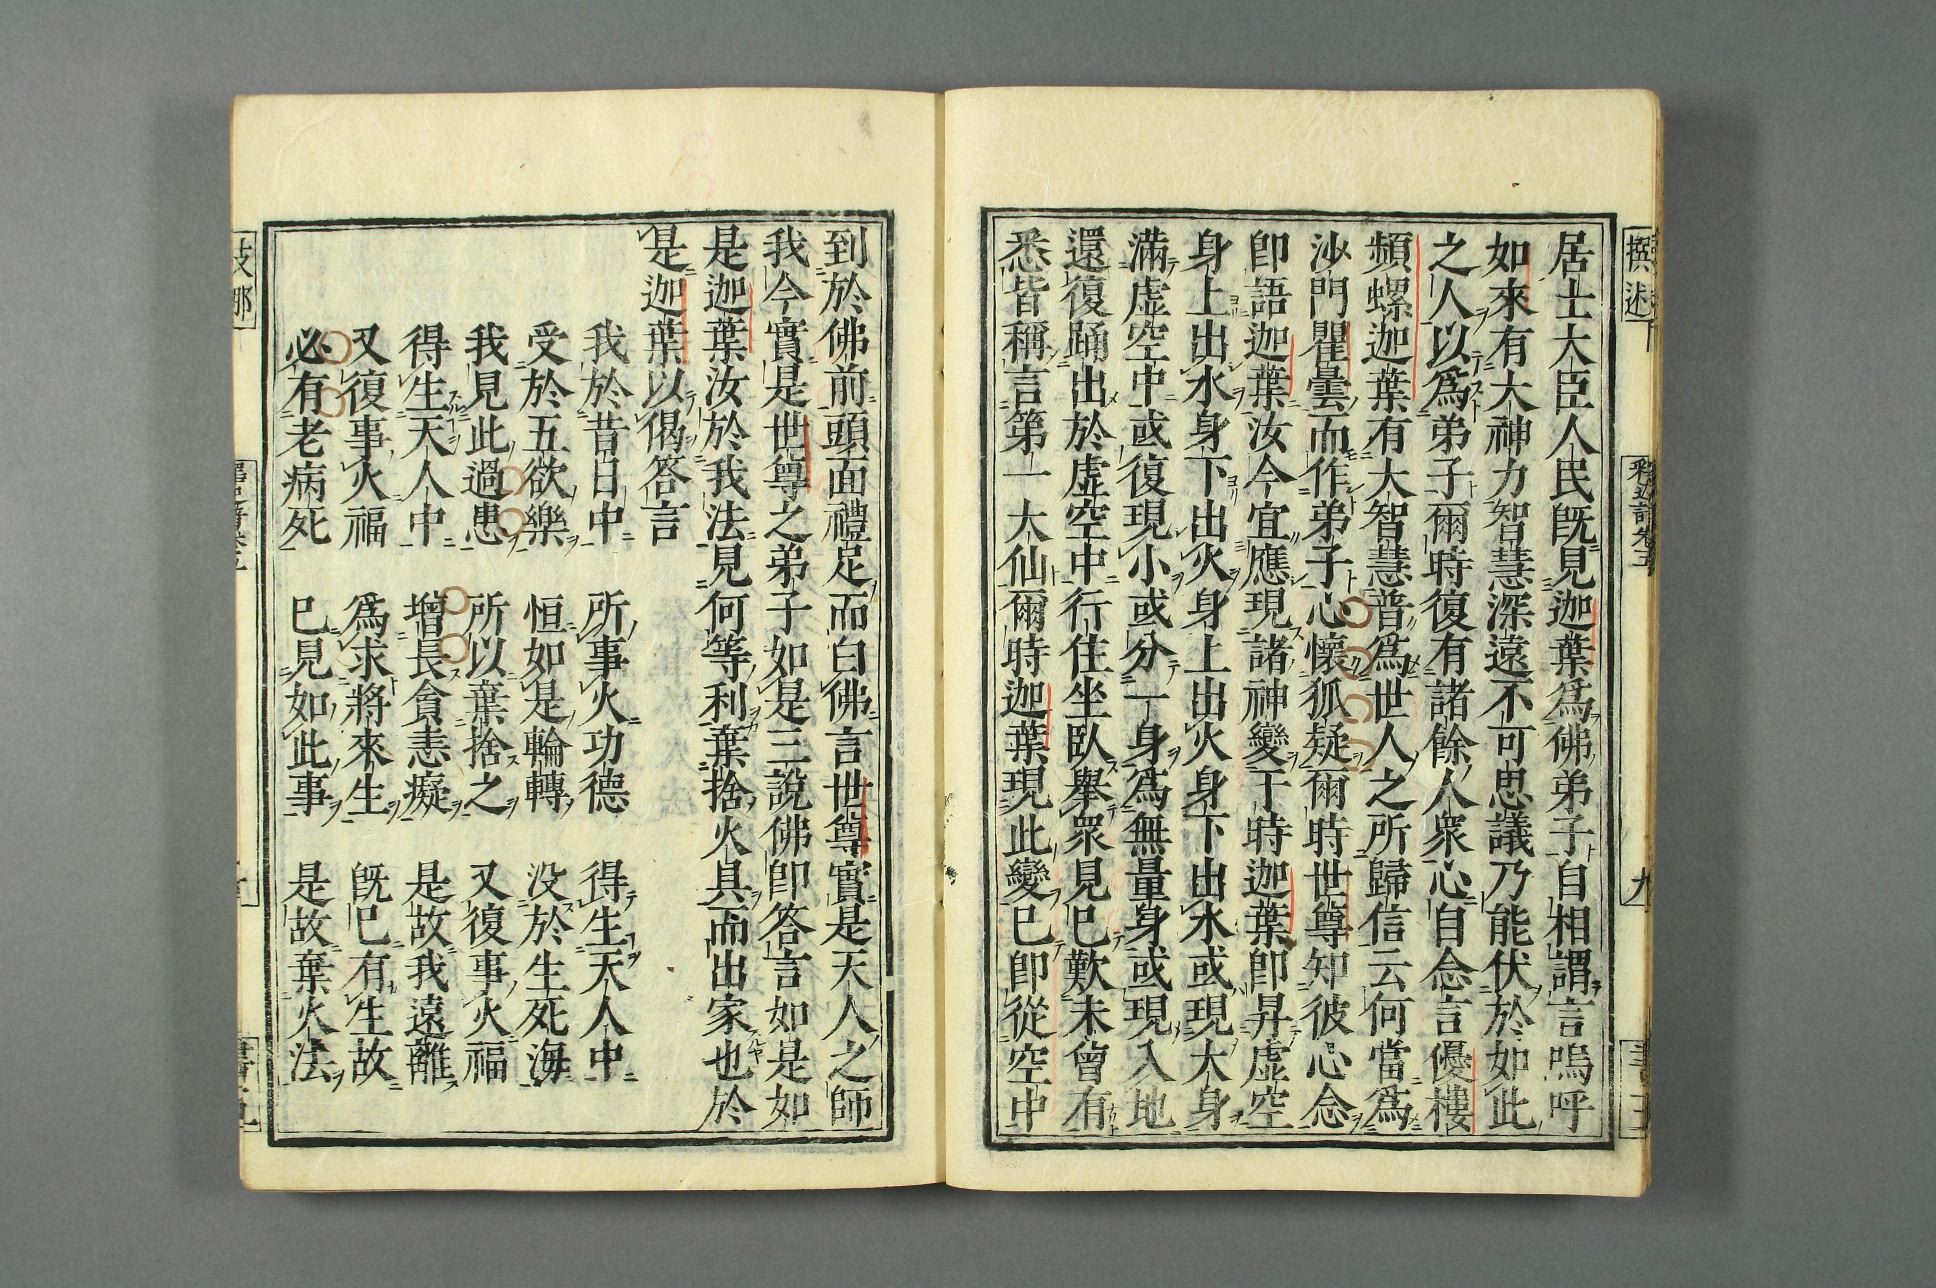 居士大臣人民旣見迦葉爲佛弟子自相謂言嗚呼
如來有大神力智慧深遠不可思議乃能伏於如此
之人以爲弟子爾時復有諸餘人衆心自念言優樓
頻螺迦葉有大智慧普爲世人之所歸信云何當爲
沙門瞿曇而作弟子心懷狐疑爾時世尊知彼心念
卽語迦葉汝今宜應現諸神變于時迦葉卽昇虛空
身上出水身下出火身上出火身下出水或現大身
滿虛空中或復現小或分一身爲無量身或現入地
還復踊出於虛空中行住坐臥擧衆見已歎未曾有
悉皆稱言第一大仙爾時迦葉現此變已卽從空中
到於佛前頭面禮足而白佛言世尊實是天人之師
我今實是世尊之弟子如是三說佛卽答言如是如
是迦葉汝於我法見何等利棄捨火具而出家也於
是迦葉以偈答言
我於昔日中　所事火功德　得生天人中
受於五欲樂　恒如是輪轉　没於生死海
我見此過患　所以棄捨之　又復事火福
得生天人中　增長貪恚癡　是故我遠離
又復事火福　爲求將來生　旣已有生故
必有老病死　已見如此事　是故棄火法
撰述
九
支那